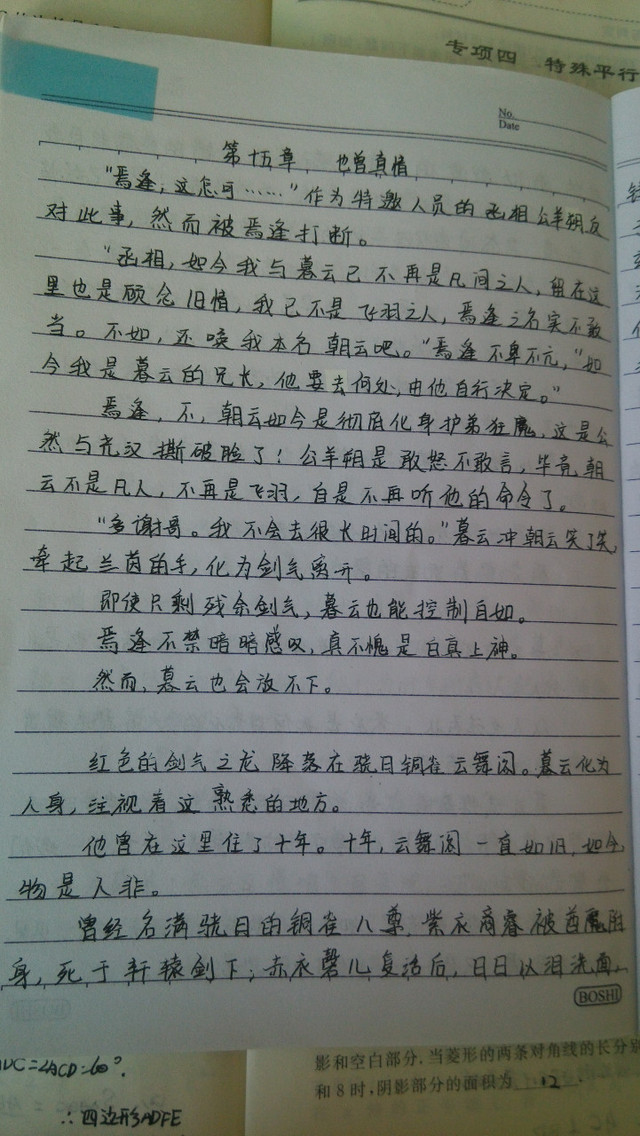 专项四 特殊平行
No.
Date
第十五章 也曾真情
“焉逢，这怎可……”作为特邀人员的丞相公羊朔反
对此事，然而被焉逢打断。
“丞相，如今我与暮云已不再是凡间之人，留在这
里也是顾念旧情，我已不是飞羽之人，焉逢之名实不敢
当。不如，还唤我本名朝云吧。”焉逢不卑不亢，“如
今我是暮云的兄长，他要去何处，由他自行决定。”
焉逢，不，朝云如今是彻底化身护弟狂魔，这是公
然与先汉撕破脸了！公羊朔是敢怒不敢言，毕竟朝
云不是凡人，不再是飞羽，自是不再听他的命令了。
“多谢哥。我不会去很长时间的。”暮云冲朝云笑了笑，
牵起兰茵的手，化为剑气离开。
即使只剩残余剑气，暮云也能控制自如。
焉逢不禁暗暗感叹，真不愧是白真上神。
然而，暮云也会放不下。
红色的剑气之龙降落在骁日铜雀云舞阁。暮云化为
人身，注视着这熟悉的地方。
他曾在这里住了十年。十年，云舞阁一直如旧，如今，
物是人非。
曾经名满骁日的铜雀八尊，紫衣商睿被酋魔附
身，死于轩辕剑下；赤衣磬儿复活后，日日以泪洗面，
BOSHI
DC=∠ACD=60°.
∴四边形ADFE
影和空白部分.当菱形的两条对角线的长分别
和8时,阴影部分的面积为 12 .